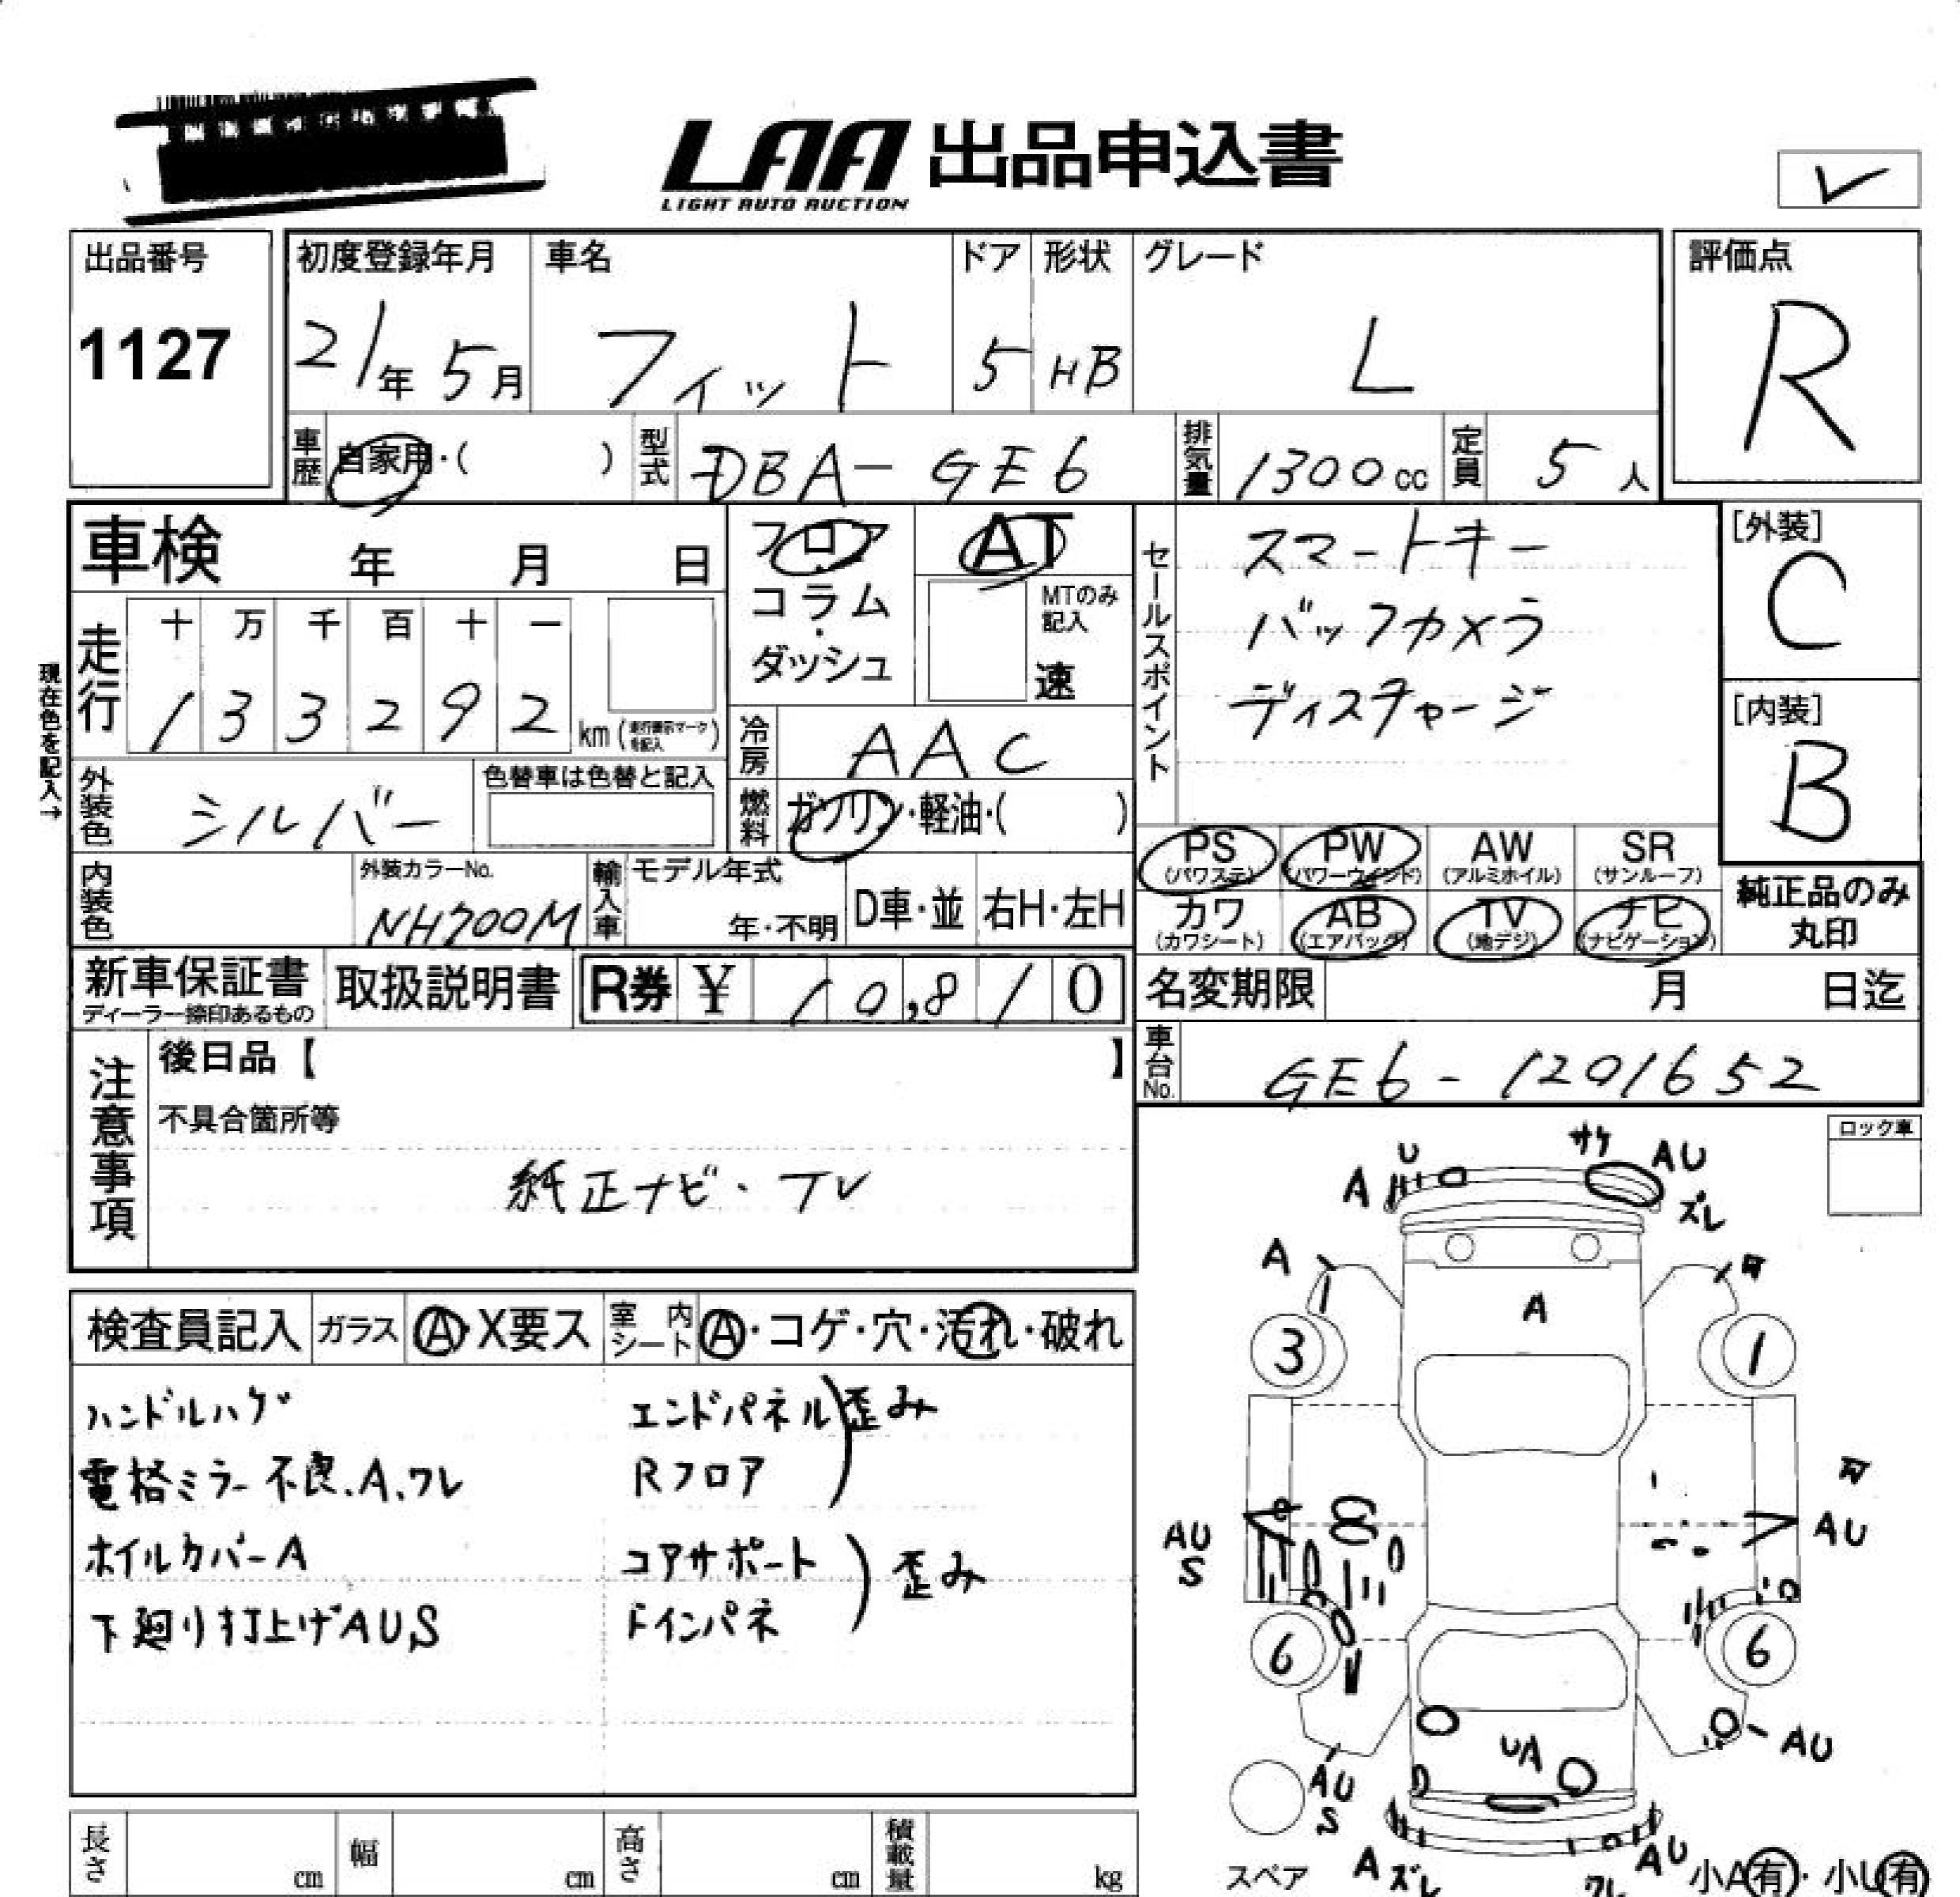 LAA 出品申込書
LIGHT AUTO AUCTION
出品番号
1127
初度登録年月
21年 5月
車名
フィット
ドア
5
形状
HB
グレード
L
評価点
R
車歴
自家用・( )
型式
DBA-GE6
排気量
1300cc
定員
5人
車検 年 月 日
フロア
コラム
ダッシュ
AT
MTのみ
記入
速
セールスポイント
スマートキー
バックカメラ
ディスチャージ
[外装]
C
[内装]
B
現在色を記入→
走行
十 万 千 百 十 一
1 3 3 2 9 2 km
冷房
AAC
外装色
シルバー
色替車は色替と記入
燃料
ガソリン・軽油・( )
内装色
外装カラーNo.
NH700M
輸入車
モデル年式
年・不明
D車・並
右H・左H
PS
(パワステ)
PW
(パワーウインド)
AW
(アルミホイル)
SR
(サンルーフ)
カワ
(カワシート)
AB
(エアバッグ)
TV
(地デジ)
ナビ
(ナビゲーション)
純正品のみ
丸印
新車保証書
ディーラー捺印あるもの
取扱説明書
R券 ¥ 10,810
名変期限 月 日迄
車台No.
GE6-1201652
注意事項
後日品【 】
不具合箇所等
純正ナビ・TV
ロック車
検査員記入
ガラス
A・X要ス
室内シート
A・コゲ・穴・汚れ・破れ
ハンドルハゲ
電格ミラー不良、A、ワレ
ホイルカバーA
下廻り打上げAUS
エンドパネル
Rフロア
歪み
コアサポート
Fインパネ
歪み
U
A
サケ
AU
ズレ
A
A
3
1
AU
S
AU
6
6
UA
AU
AU
S
スペア
A
ズレ
ワレ
AU
小A有・小U有
長さ cm
幅 cm
高さ cm
積載量 kg